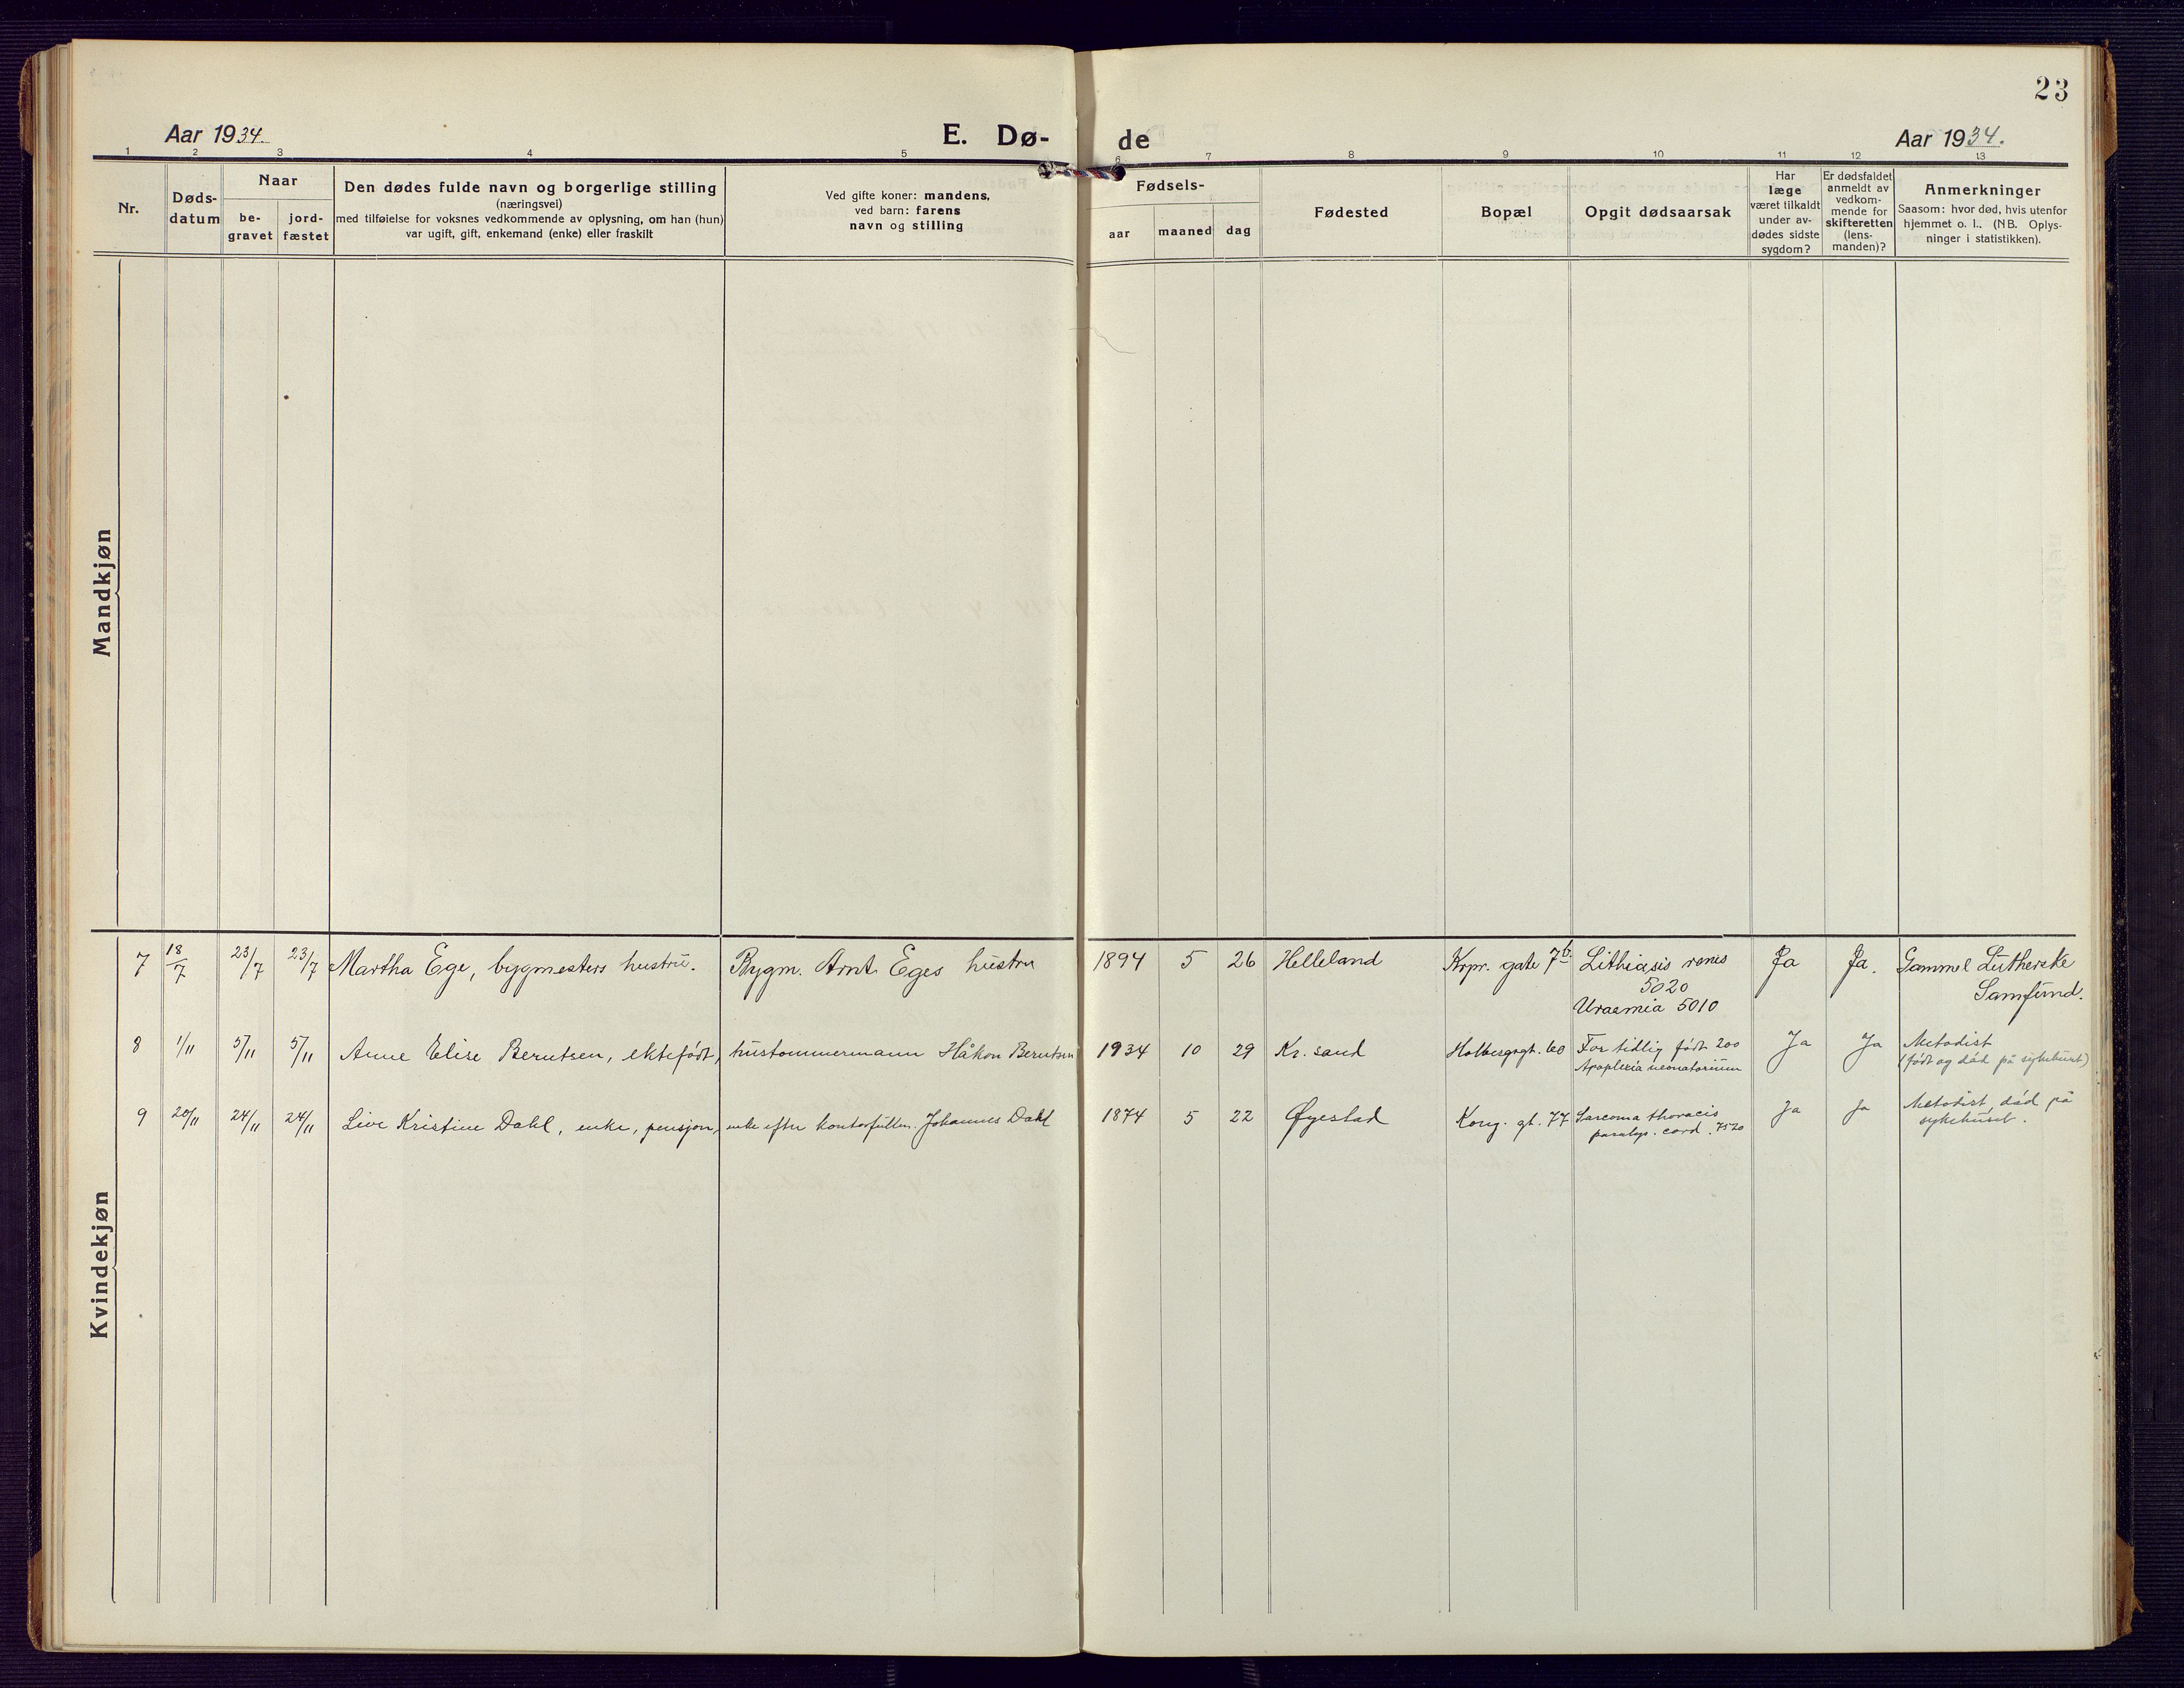 23
Aar 1934.
E. Dø-
de
Aar 1934.
1 2 3 4 5 6 7 8 9 10 11 12 13
Nr.
Døds-
datum
Naar
be-
gravet
jord-
fæstet
Den dødes fulde navn og borgerlige stilling
(næringsvei)
med tilføielse for voksnes vedkommende av oplysning, om han (hun)
var ugift, gift, enkemand (enke) eller fraskilt
Ved gifte koner: mandens,
ved barn: farens
navn og stilling
Fødsels-
aar
maaned
dag
Fødested
Bopæl
Opgit dødsaarsak
Har
læge
været tilkaldt
under av-
dødes sidste
sygdom?
Er dødsfaldet
anmeldt av
vedkom-
mende for
skifteretten
(lens-
manden)?
Anmerkninger
Saasom: hvor død, hvis utenfor
hjemmet o. l.. (NB. Oplys-
ninger i statistikken).
Mandkjøn
Kvindekjøn
7 18/7 23/7 23/7 Martha Ege, bygmesters hustru. Bygm. Arnt Eges hustru 1894 5 26 Helleland Krpr. gate 7b Lithiasis renis Ja Ja. Gammel Lutherske
5020 Samfund.
Uraemia 5010
8 1/11 5/11 5/11 Anne Elise Berntsen, ektefødt, hustømmermann Håkon Berntsen 1934 10 29 Kr. sand Holbergsgt. 60 For tidlig født 200 Ja Ja Metodist
Apoplexia neonatorium (født og død på sykehuset)
9 20/11 24/11 24/11 Live Kristine Dahl, enke, pensjon, enke efter kontorfullm. Johannes Dahl 1874 5 22 Øyestad Kong. gt. 77 Sarcoma thoracis Ja Ja Metodist, død på
paralys. cord. 7520 sykehuset.